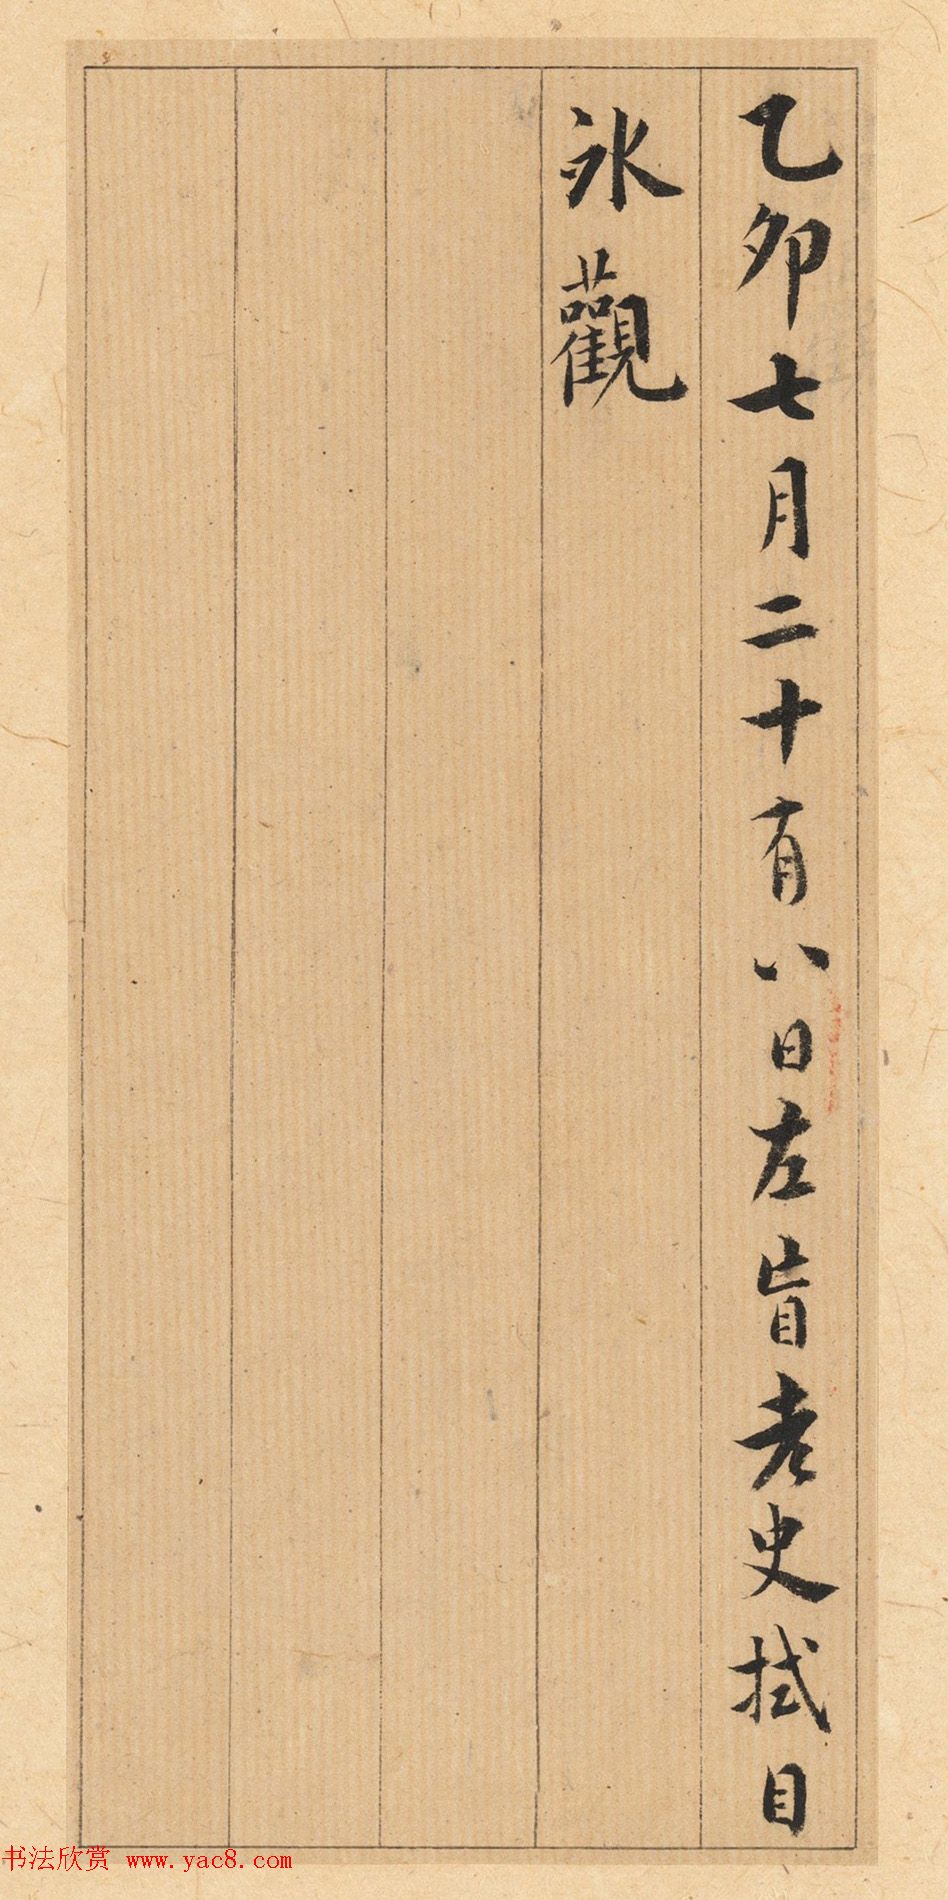 乙卯七月二十有八日左盲老史拭目
觀
书法欣赏 www.yac8.com